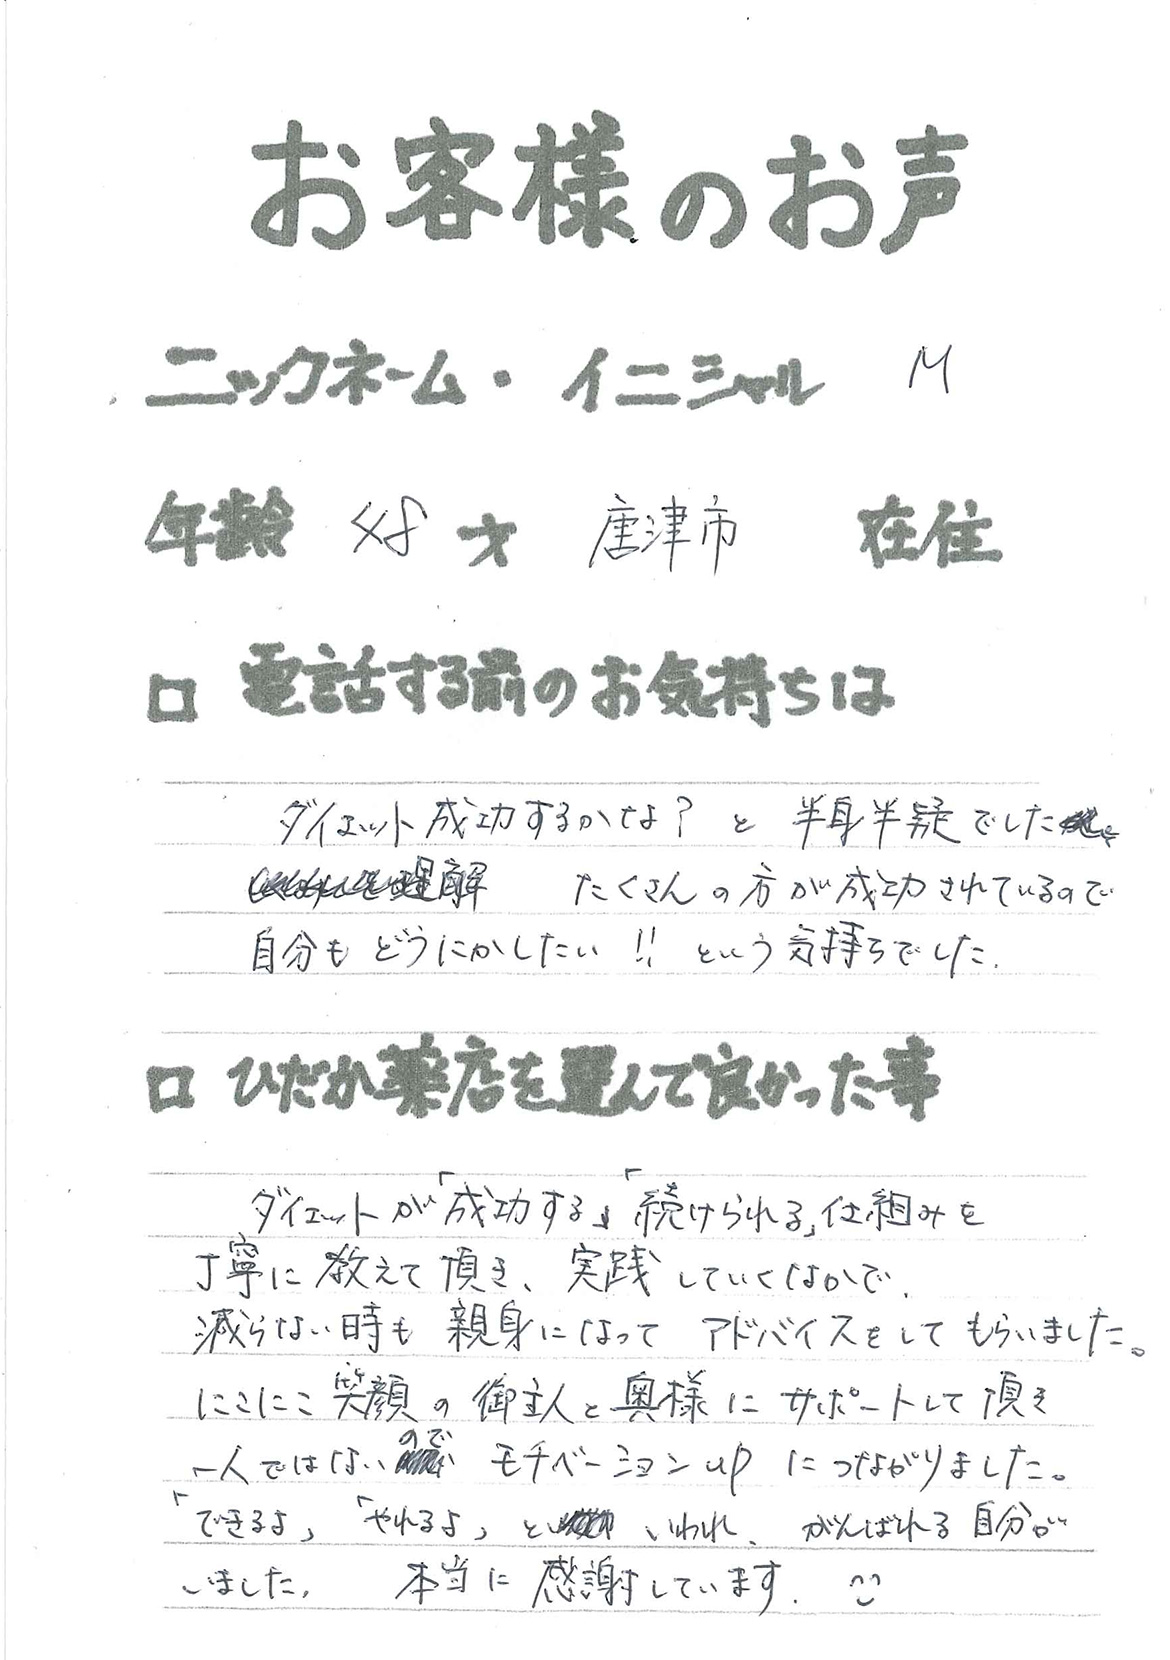 お客様のお声
ニックネーム・イニシャル M
年齢 48 才 唐津市 在住
□ 電話する前のお気持ちは
ダイエット成功するかな？ と 半身半疑でした
理解 たくさんの方が成功されているので
自分も どうにかしたい !! という気持ちでした.
□ ひだか薬店を選んで良かった事
ダイエットが「成功する」「続けられる」仕組みを
丁寧に教えて頂き、実践していくなかで、
減らない時も 親身になって アドバイスをして もらいました。
にこにこ笑顔の御主人と奥様に サポートして頂き
一人ではないので モチベーションup につながりました。
「できるよ」「やれるよ」と いわれ、がんばれる自分が
いました. 本当に感謝しています.